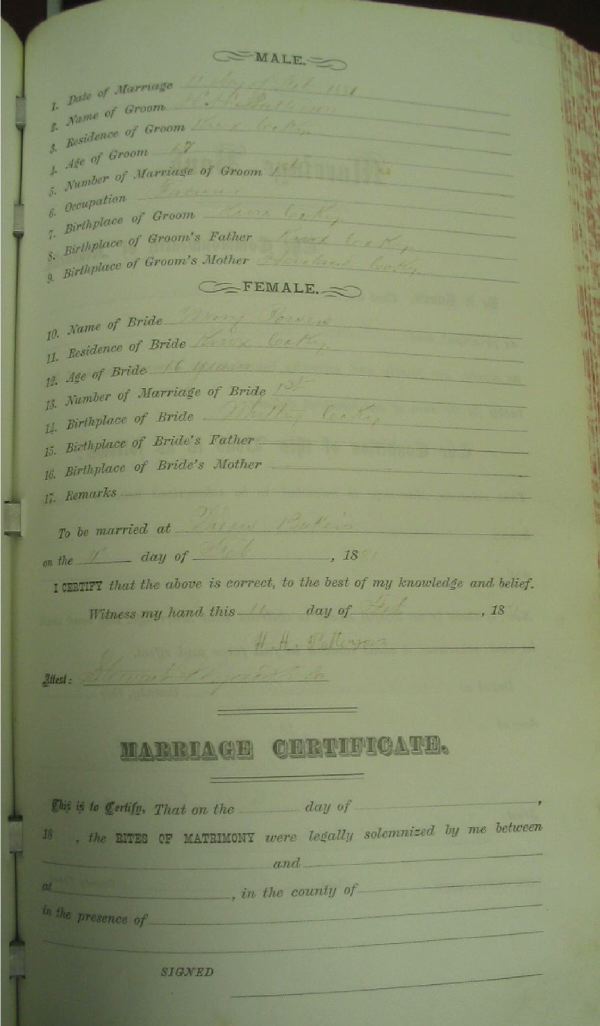 MALE.
1. Date of Marriage 11 day of Feb. 1891
2. Name of Groom
3. Residence of Groom Knox Co Ky
4. Age of Groom
5. Number of Marriage of Groom 1st
6. Occupation Farmer
7. Birthplace of Groom Knox Co Ky
8. Birthplace of Groom's Father Knox Co Ky
9. Birthplace of Groom's Mother Co Ky
FEMALE.
10. Name of Bride Mary
11. Residence of Bride Knox Co Ky
12. Age of Bride 16 years
13. Number of Marriage of Bride 1st
14. Birthplace of Bride Whitley Co Ky
15. Birthplace of Bride's Father
16. Birthplace of Bride's Mother
17. Remarks
To be married at
on the 11 day of Feb , 18
I CERTIFY that the above is correct, to the best of my knowledge and belief.
Witness my hand this 11 day of Feb , 18
H. H. Patterson
Attest:
MARRIAGE CERTIFICATE.
This is to Certify, That on the day of ,
18 , the RITES OF MATRIMONY were legally solemnized by me between
and
at , in the county of
in the presence of
SIGNED